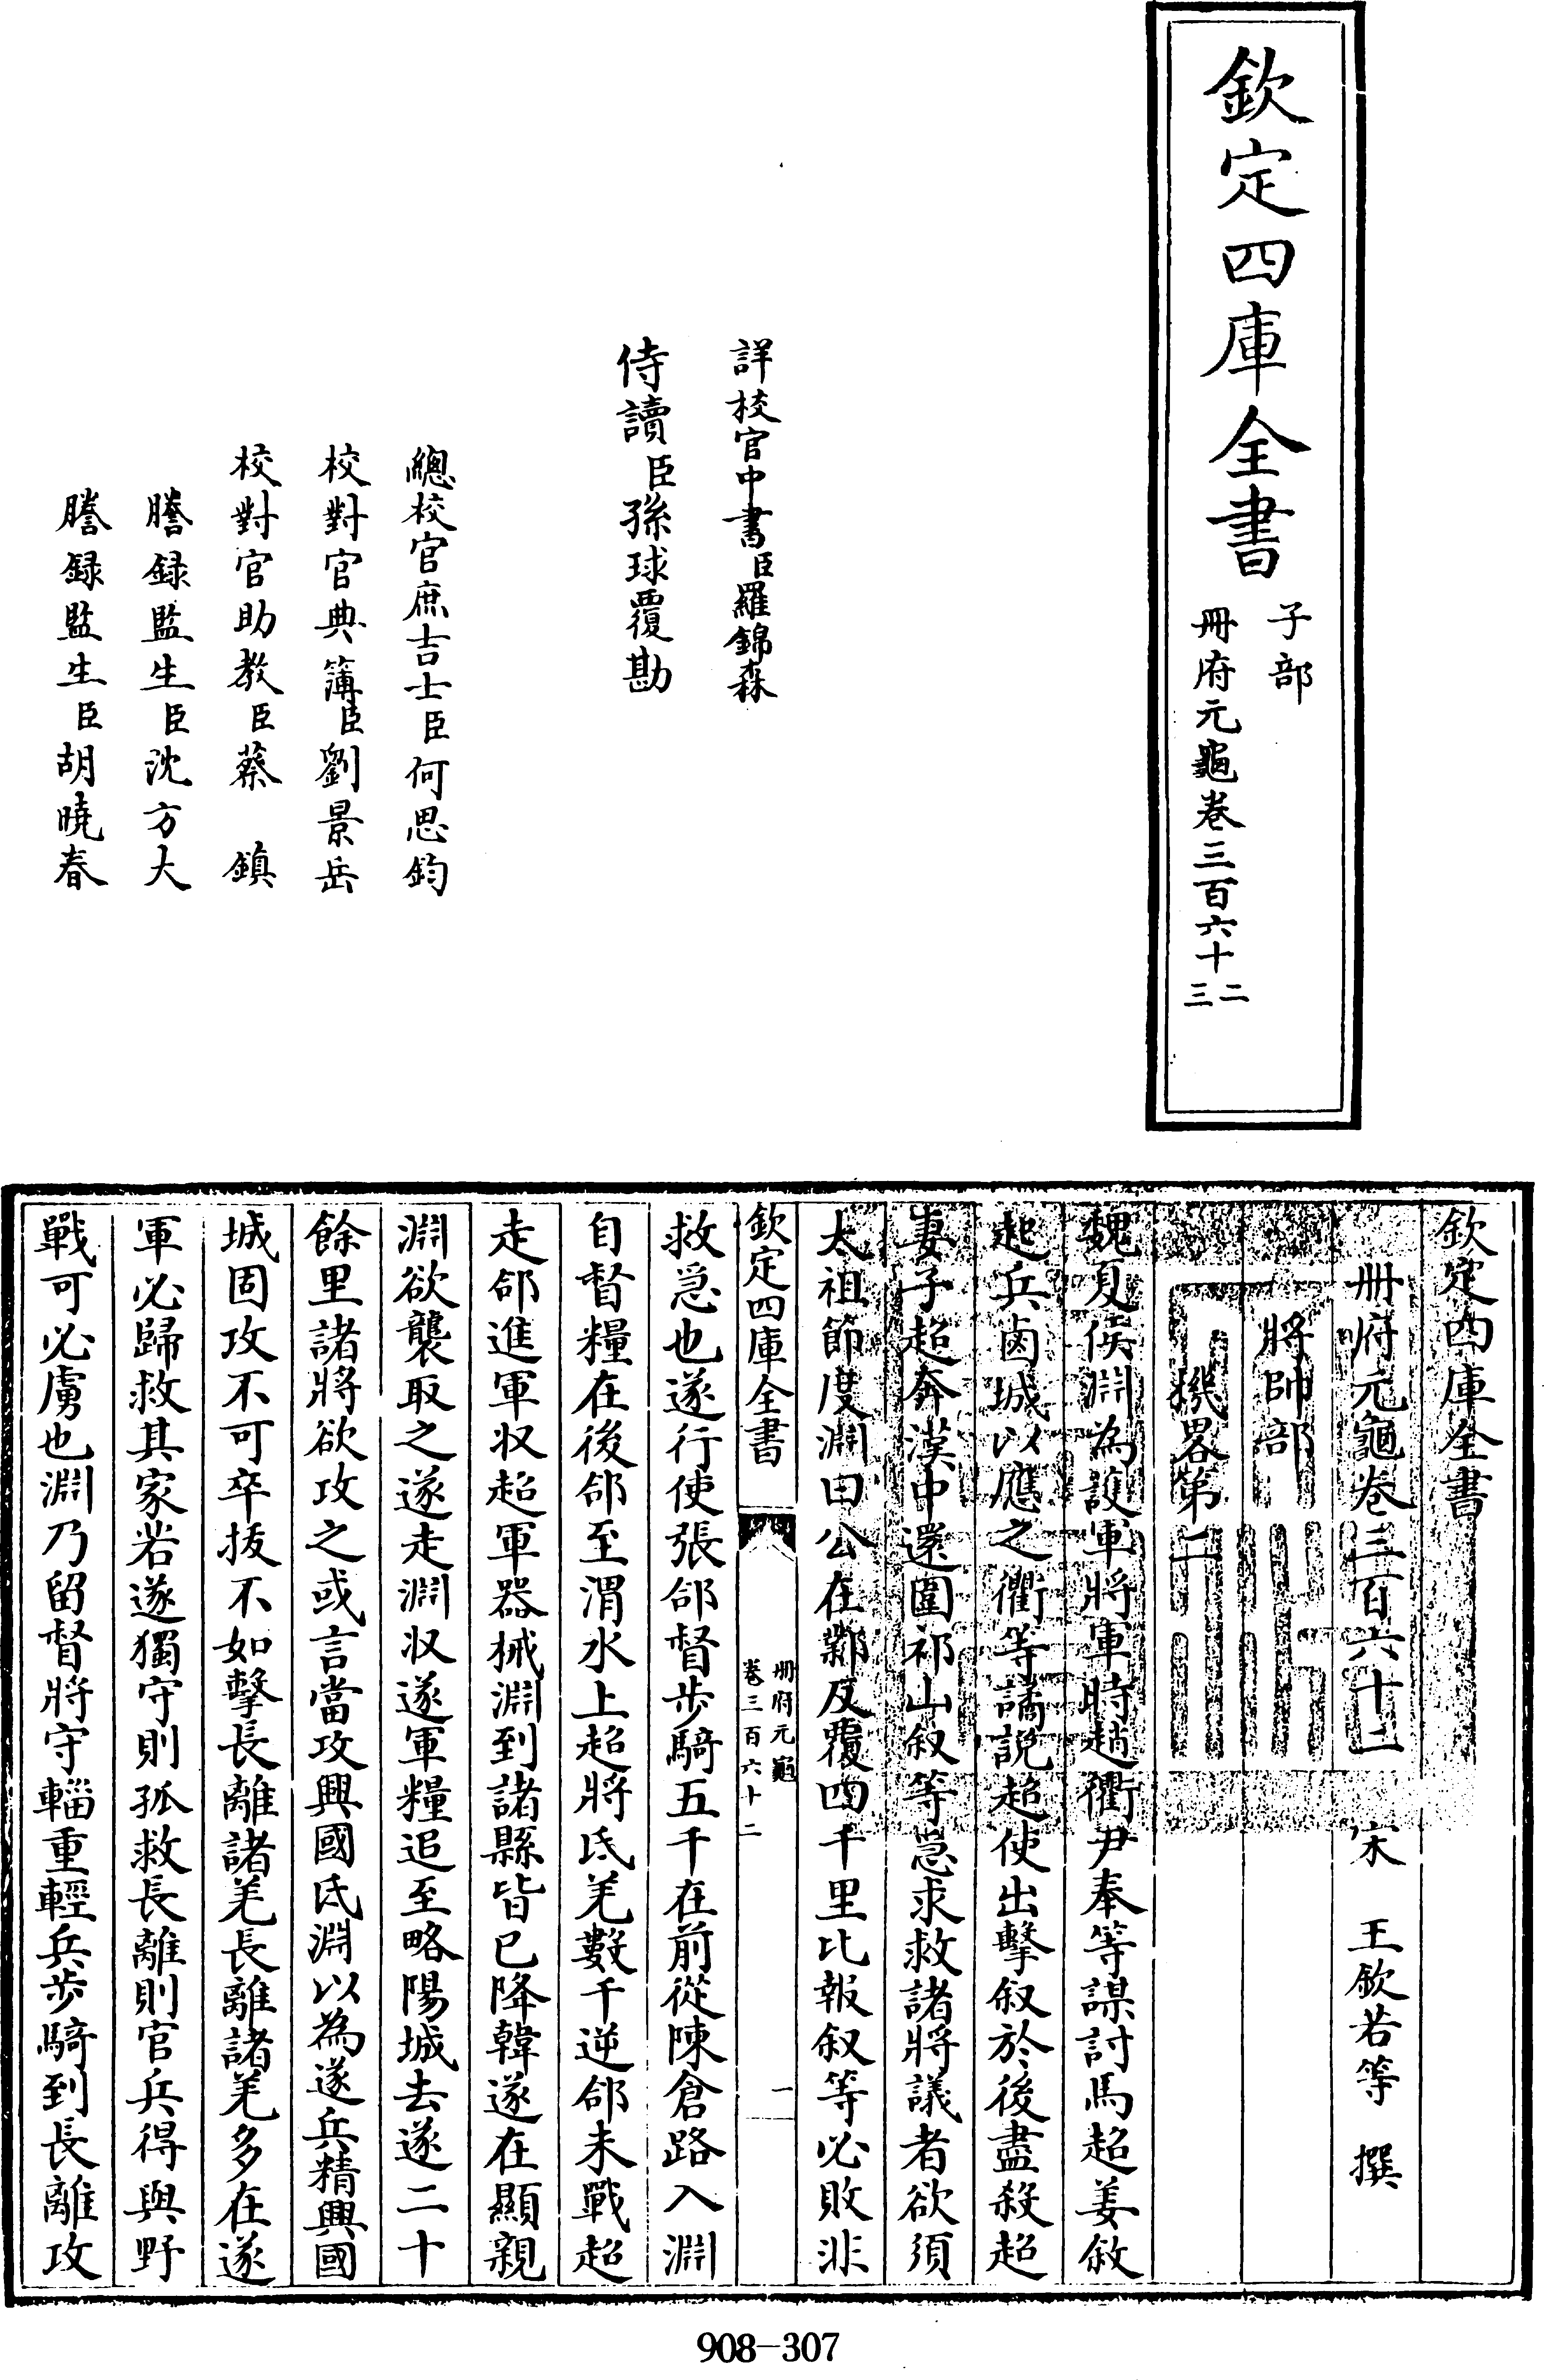 欽定四庫全書
子部
冊府元龜卷三百六十二
三
詳校官中書臣羅錦森
侍讀臣孫球覆勘
總校官庶吉士臣何思鈞
校對官典簿臣劉景岳
校對官助教臣蔡鎮
謄錄監生臣沈方大
謄錄監生臣胡曉春
欽定四庫全書
冊府元龜卷三百六十二 宋 王欽若等 撰
將帥部
機畧第二
魏夏侯淵為護軍將軍時趙衢尹奉等謀討馬超姜敘
起兵鹵城以應之衢等譎說超使出擊叙於後盡殺超
妻子超奔漢中還圍祁山叙等急求救諸將議者欲須
太祖節度淵曰公在鄴反覆四千里比報叙等必敗非
欽定四庫全書
冊府元龜
卷三百六十二
一
救急也遂行使張郃督步騎五千在前從陳倉路入淵
自督糧在後郃至渭水上超將氐羌數千逆郃未戰超
走郃進軍収超軍器械淵到諸縣皆已降韓遂在顯親
淵欲襲取之遂走淵収遂軍糧追至略陽城去遂二十
餘里諸將欲攻之或言當攻興國氐淵以為遂兵精興國
城固攻不可卒拔不如擊長離諸羌長離諸羌多在遂
軍必歸救其家若遂獨守則孤救長離則官兵得與野
戰可必虜也淵乃留督將守輜重輕兵步騎到長離攻
908-307